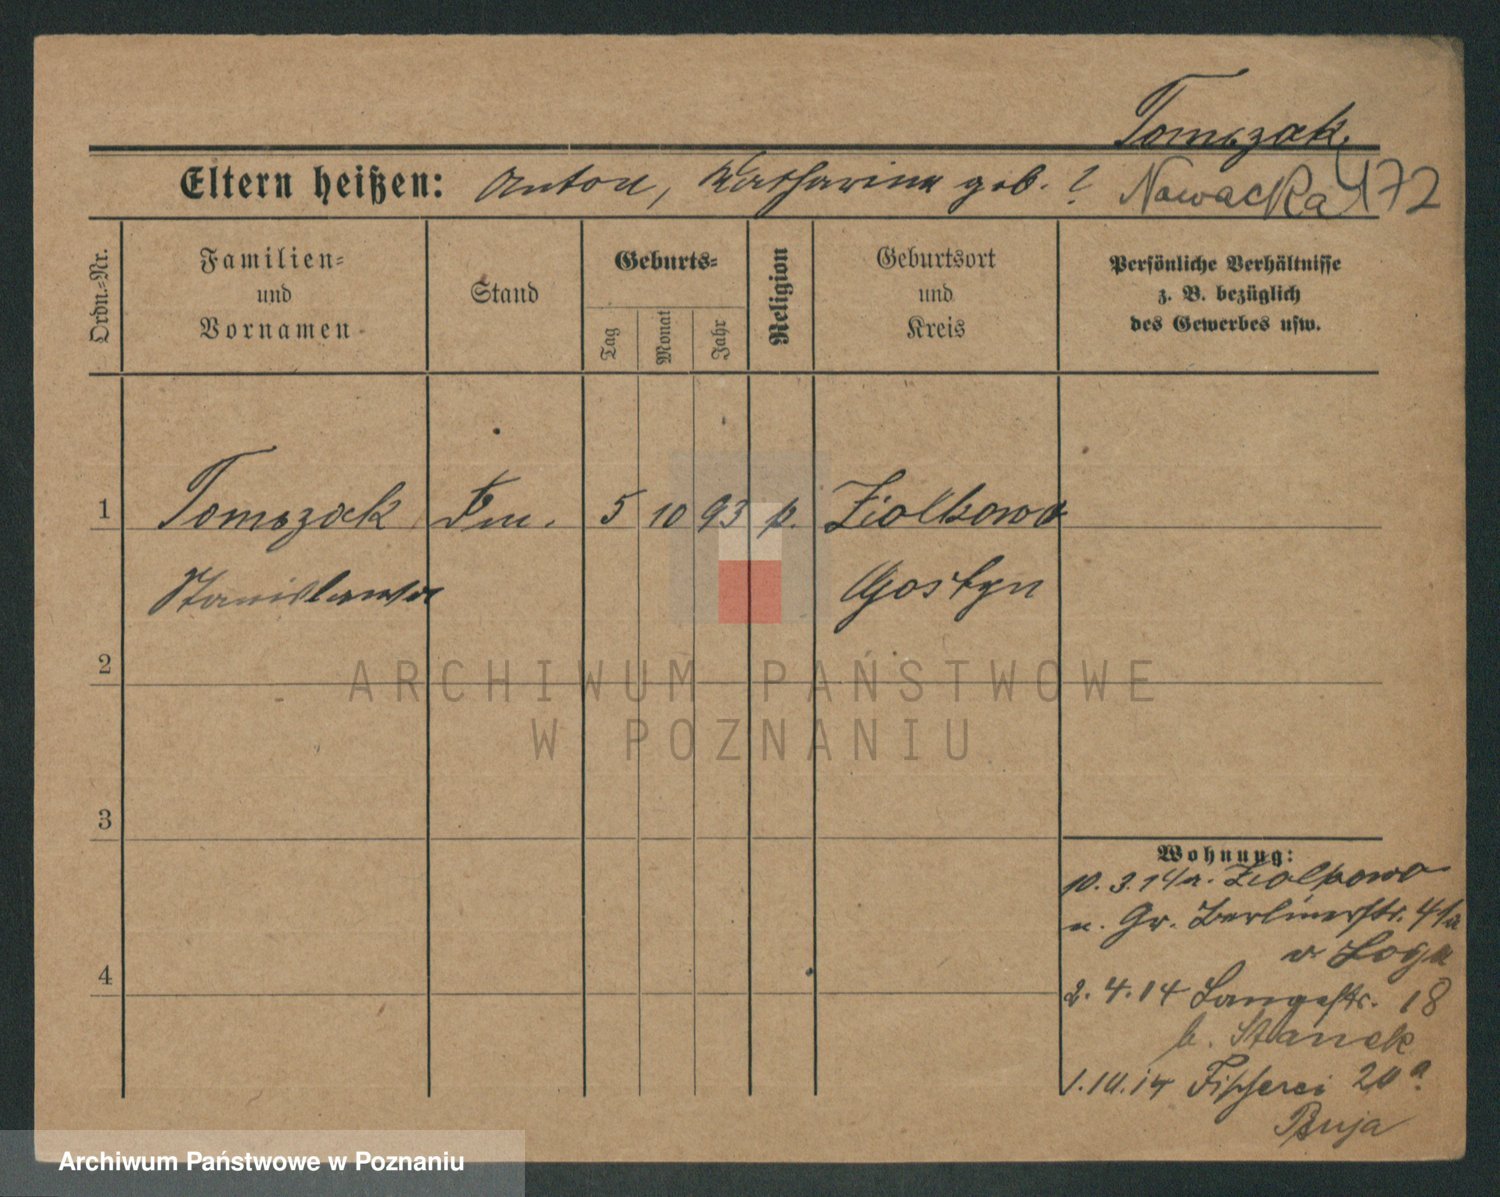 Tomczak
Eltern heißen: Anton, Katharina geb. ? Nowacka 172
Ordn.=Nr.
Familien=
und
Vornamen
Stand
Geburts=
Tag
Monat
Jahr
Religion
Geburtsort
und
Kreis
Persönliche Verhältnisse
z. B. bezüglich
des Gewerbes usw.
1 Tomczak 5 10 93 Ziolkowo
Stanislawa Gostyn
2
3
4
Wohnung:
10. 3. 14 Ziolkowo
n. Gr. Berlinerstr. 41a
2. 4. 14 Langestr. 18
b. Stanek
1.10.14 Fischerei 20a
Buja
ARCHIWUM PAŃSTWOWE
W POZNANIU
Archiwum Państwowe w Poznaniu